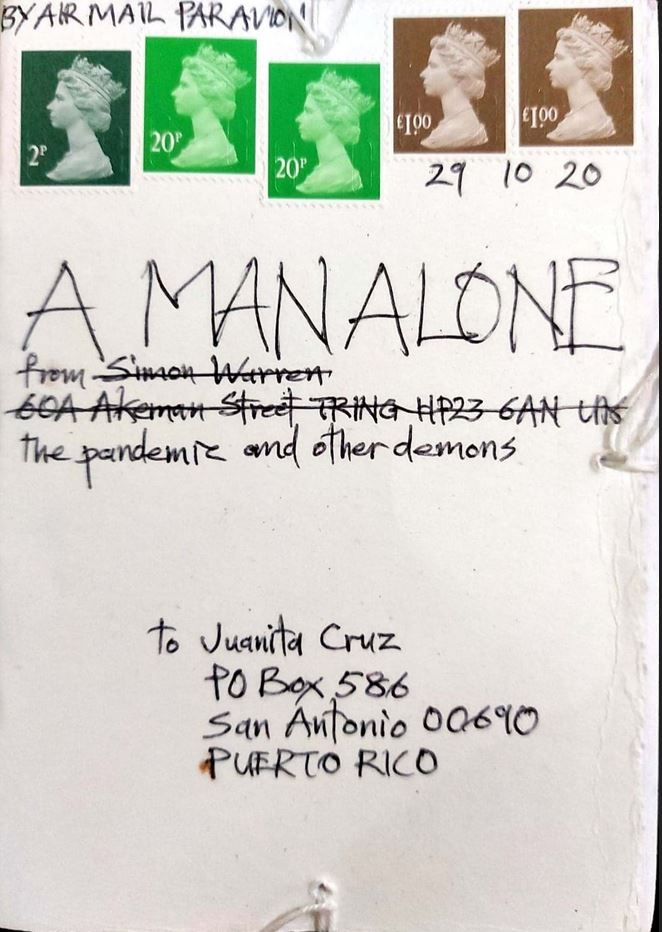 BY AIR MAIL PAR AVION
2P
20P
20P
£1.00
£1.00
29 10 20
A MAN ALONE
from Simon Warren
60A Akeman Street TRING HP23 6AN UK
the pandemic and other demons
to Juanita Cruz
PO Box 586
San Antonio 00690
PUERTO RICO